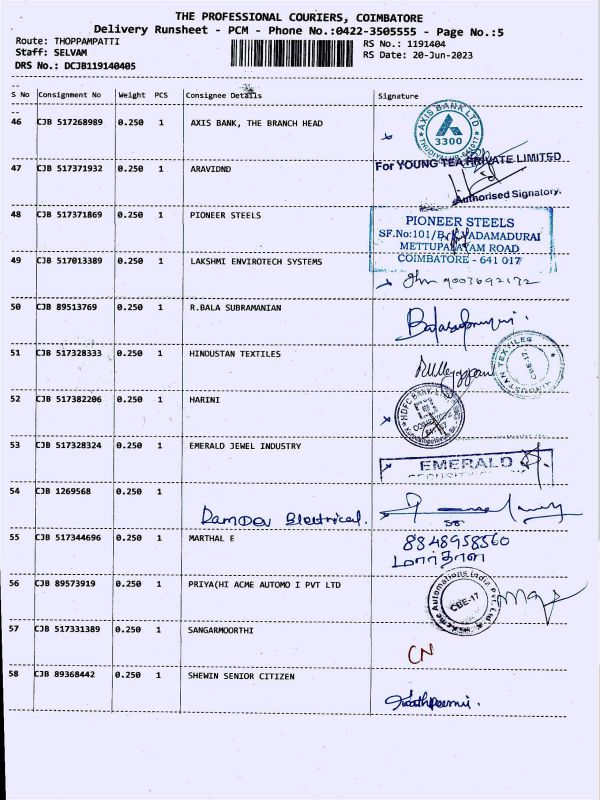 THE PROFESSIONAL COURIERS, COIMBATORE
Delivery Runsheet - PCM - Phone No.:0422-3505555 - Page No.:5
Route: THOPPAMPATTI
Staff: SELVAM
DRS No.: DCJB119140405
RS No.: 1191404
RS Date: 20-Jun-2023
S No Consignment No Weight PCS Consignee Details Signature
46 CJB 517268989 0.250 1 AXIS BANK, THE BRANCH HEAD
AXIS BANK LTD
3300
47 CJB 517371932 0.250 1 ARAVIDND
For YOUNG TEA PRIVATE LIMITED
Authorised Signatory.
48 CJB 517371869 0.250 1 PIONEER STEELS
PIONEER STEELS
SF.No:101/B, VADAMADURAI
METTUPALAYAM ROAD
COIMBATORE - 641 017
49 CJB 517013389 0.250 1 LAKSHMI ENVIROTECH SYSTEMS
9003692172
50 CJB 89513769 0.250 1 R.BALA SUBRAMANIAN
51 CJB 517328333 0.250 1 HINDUSTAN TEXTILES
HINDUSTAN TEXTILES
CBE-17
52 CJB 517382206 0.250 1 HARINI
HDFC BANK
53 CJB 517328324 0.250 1 EMERALD JEWEL INDUSTRY
EMERALD
54 CJB 1269568 0.250 1
Electrical.
55 CJB 517344696 0.250 1 MARTHAL E
8848958560
மார்தாள்
56 CJB 89573919 0.250 1 PRIYA(HI ACME AUTOMO I PVT LTD
Acme Automations India Pvt. Ltd
CBE-17
57 CJB 517331389 0.250 1 SANGARMOORTHI
CN
58 CJB 89368442 0.250 1 SHEWIN SENIOR CITIZEN